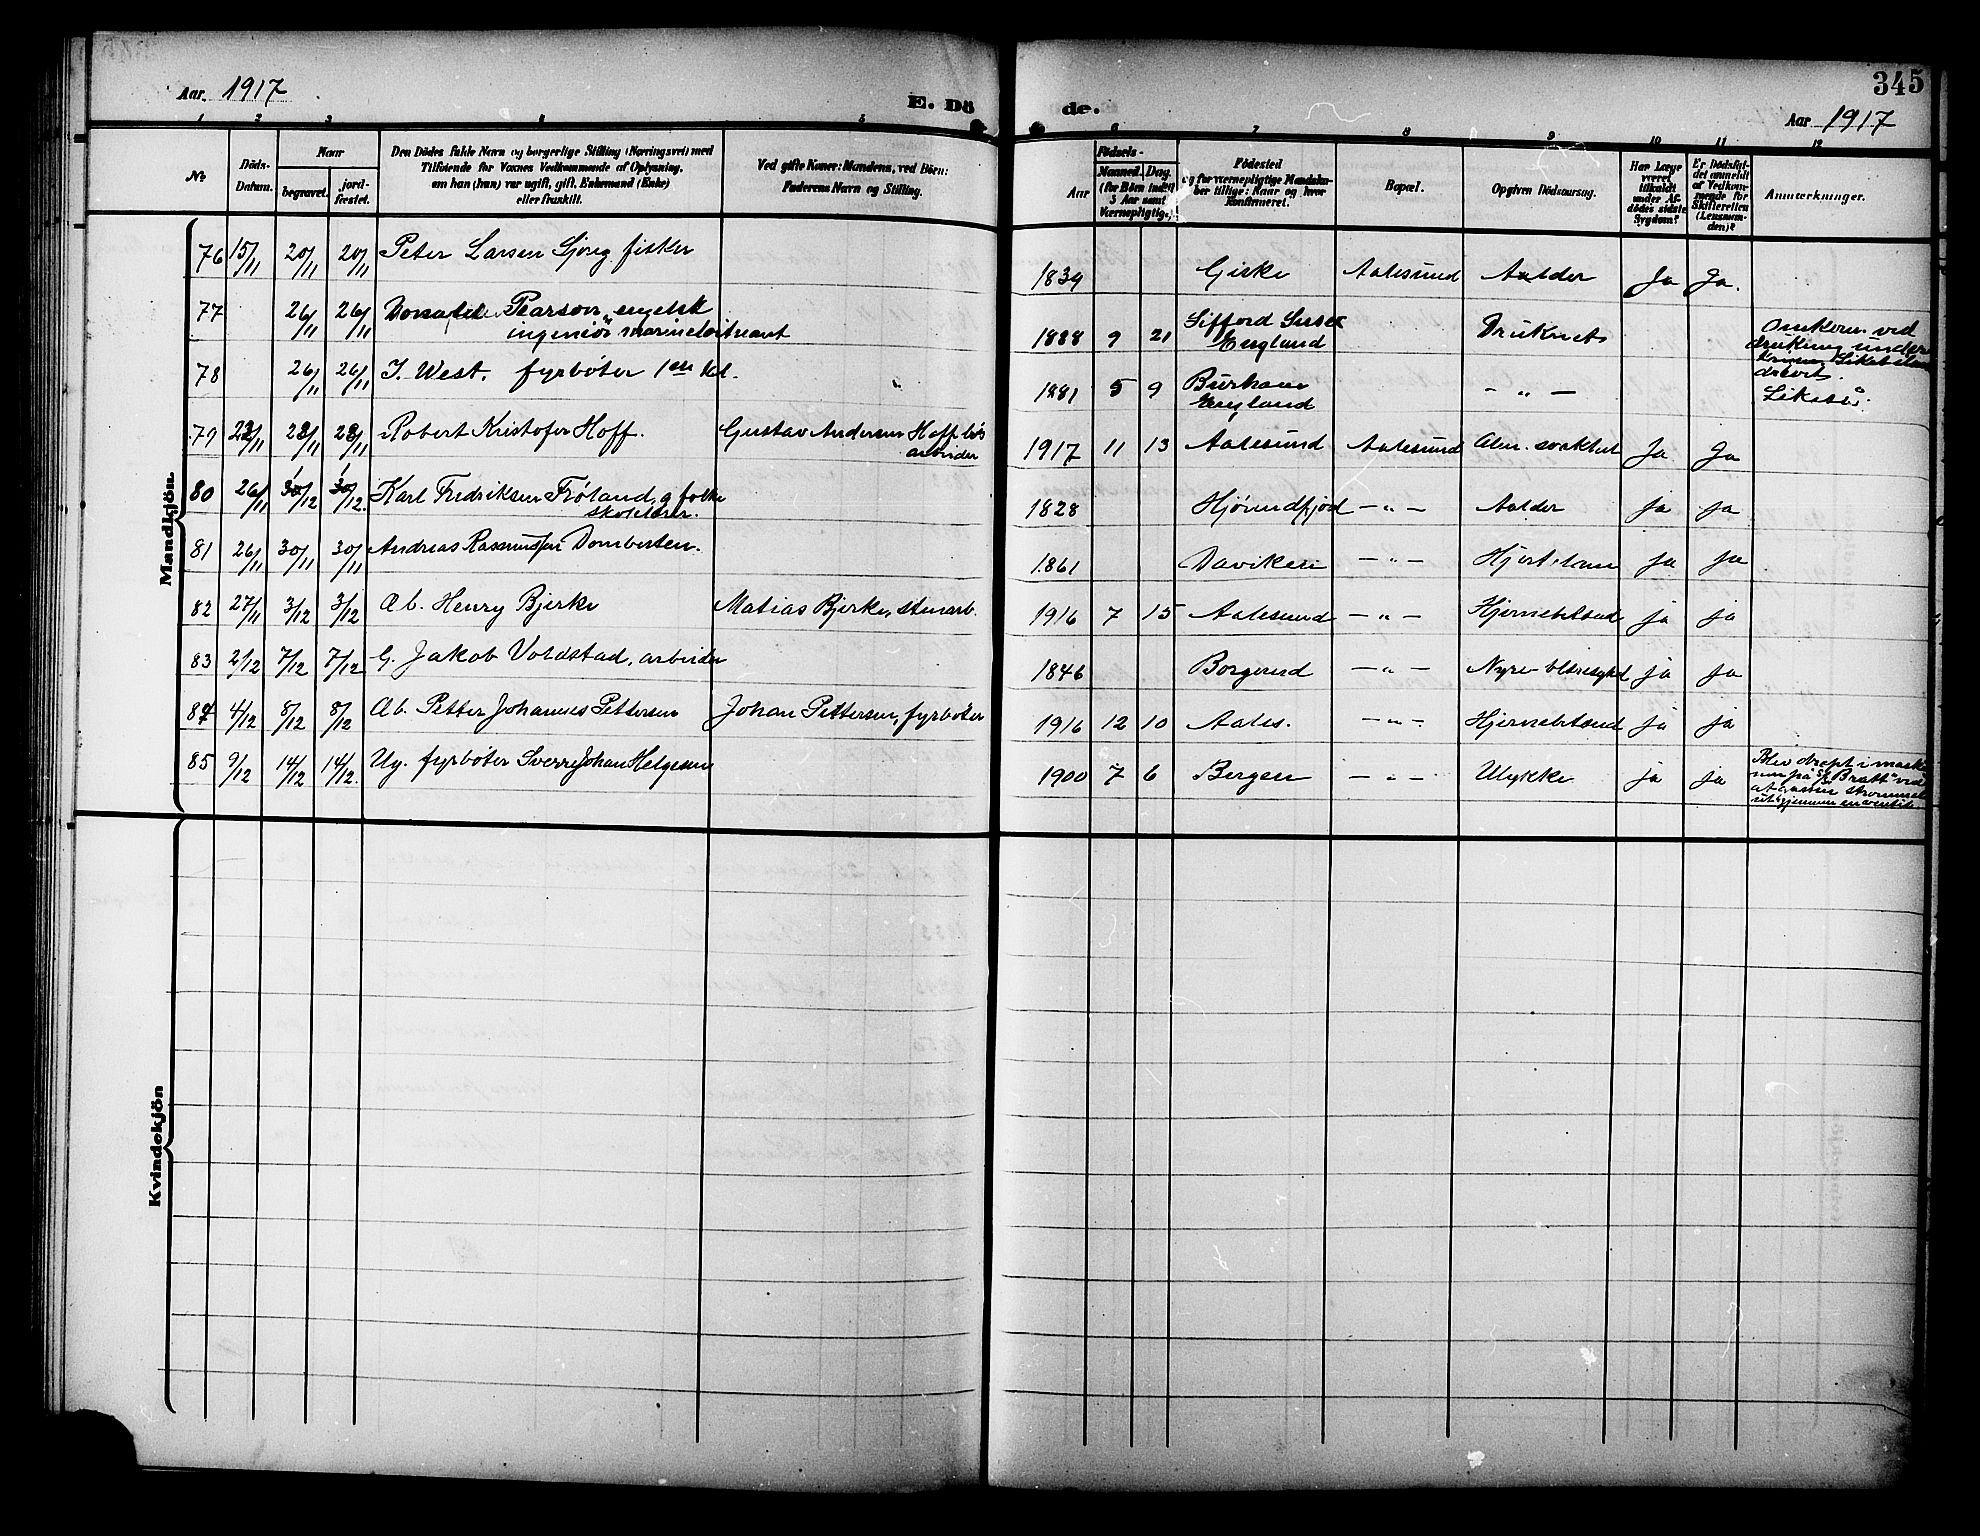 Aar. 1917
E. Dö
de.
345
Aar 1917
1 2 3 4 5 6 7 8 9 10 11 12
No
Döds-
Datum.
Naar
begravet.
jord-
fæstet.
Den Dödes fulde Navn og borgerlige Stilling (Næringsvei) med
Tilföiende for Voxnes Vedkommende af Oplysning,
om han (hun) var ugift, gift, Enkemand (Enke)
eller fraskilt.
Ved gifte Koner: Mandens, ved Börn:
Faderens Navn og Stilling.
Födsels-
Aar
Maaned. Dag.
(for Börn indtil
3 Aar samt
Værnepligtige.)
Födested
og for værnepligtige Mandskaber
tillige: Naar og hvor
Konfirmeret.
Bopæl.
Opgiven Dödsaarsag.
Har Læge
været
tilkaldt
under Afdödes
sidste
Sygdom?
Er Dödsfaldet
anmeldt
af Vedkommende
for
Skifteretten
(Lensmanden)?
Anmærkninger.
Mandkjön.
76 15/11 20/11 20/11 Peter Larsen Gjöreg fisker 1839 Giske Aalesund Aalder Ja Ja.
77 26/11 26/11 Pearson, engelsk
ingeniör marineloitnant 1888 9 21 England Druknet Omkom ved
drukning under
78 26/11 26/11 J. West. fyrböter 1ste kl. 1881 5 9 England — „ —
79 23/11 28/11 28/11 Robert Kristofer Hoff. Gustav Andersen Hoff, løs
arbeider 1917 11 13 Aalesund Aalesund Alm. svakhet Ja Ja
80 26/11 30/12 30/12. Karl Fredriksen Frøland, g folke
skolelærer. 1828 Hjørundfjord — „ — Aalder ja ja
81 26/11 30/11 30/11 Andreas Rasmussen Dombesten. 1861 Daviken — „ — ja ja
82 27/11 3/12 3/12 Æb. Henry Bjerke Matias Bjerke, stenarb. 1916 7 15 Aalesund — „ — Hjernebetænd ja ja
83 2/12 7/12 7/12 G. Jakob Voldstad, arbeider 1846 Borgund — „ — Nyre- blæresykd ja ja
84 4/12 8/12 8/12 Æb. Petter Johannes Pettersen Johan Pettersen, fyrböter 1916 12 10 Aales. — „ — Hjernebetænd ja ja
85 9/12 14/12 14/12. Ug. fyrböter Sverre Johan Helgesen 1900 7 6 Bergen — „ — Ulykke ja ja Blev dræpt i maski
nen på S/S "Bratt" ved
Kvindekjön